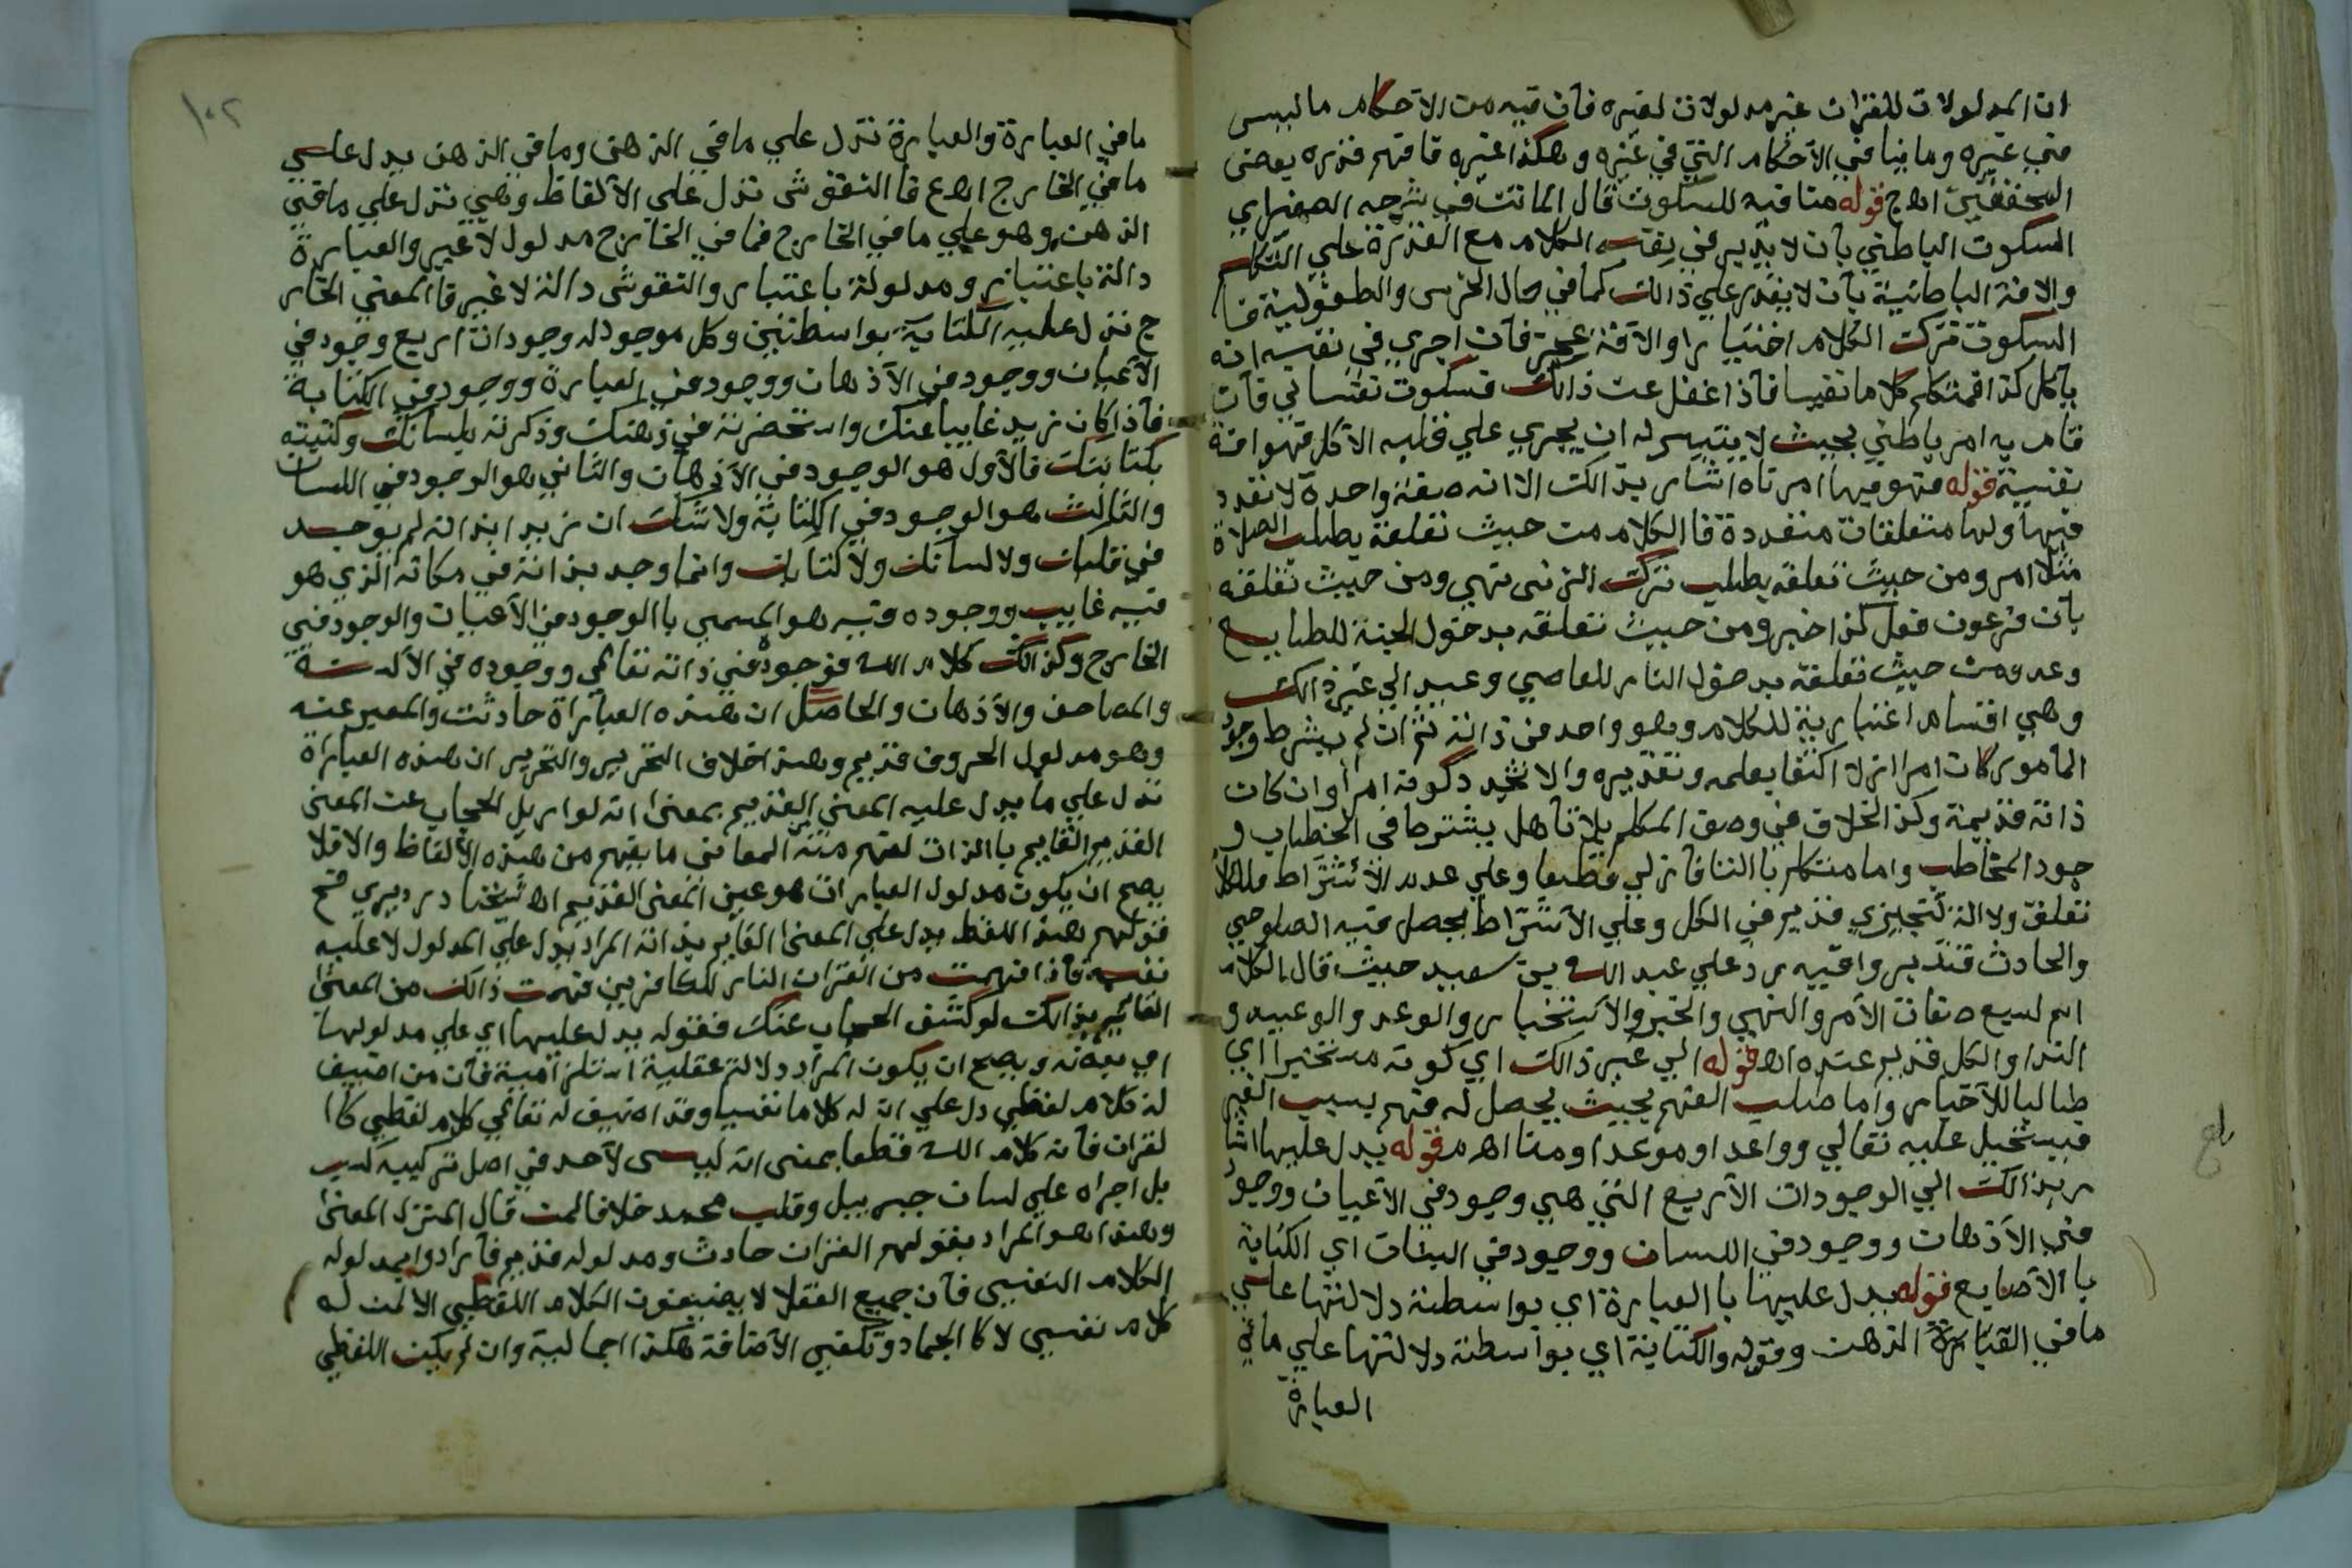 ان المدلولات للقران غير مدلولات لغيره فان فيه من الاحكام ما ليس
في غيره وما ينافي الاحكام التي في غيره وهكذا غيره فافهم قرره بعض
المحققين اهـ ج قوله منافيه للسكوت قال المانت في شرحه الصغير اي
السكوت الباطني بان لا يدير في نفسه الكلام مع القدرة علي التكلم
والافة الباطنية بان لا يقدر علي ذالك كما في حال الخرس والطفولية فا
السكوت ترك الكلام اختيارا والافة عجز فان اجري في نفسه انه
ياكل كذا فمتكلم كلاما نفيسا فاذا غفل عن ذالك فسكوت نفساني فان
قام به امر باطني بحيث لا يتيسر له ان يجري علي قلبه الاكل فهو افة
نفسية قوله فهو فيها امر ناه اشار بذالك الا انه صفة واحدة لا تعدد
فيها ولها متعلقات متعددة فا الكلام من حيث تعلقه بطلب الصلاة
مثلا امر ومن حيث تعلقه بطلب ترك الزنى نهي ومن حيث تعلقه
بان فرعون فعل كذا خبر ومن حيث تعلقه بدخول الجنة للطايع
وعد ومن حيث تعلقه بدخول النار للعاصي وعيد الي غير ذالك
وهي اقسام اعتبارية للكلام وهو واحد في ذاته ثم ان لم يشترط وجود
المامور كان امرا ازلا اكتفا بعلمه وتقديره والا تجدد كونه امرا وان كان
ذاته قديمة وكذا الخلاف في وصف المتكلم بلاتنا هل يشترط في الخطاب و
جود المخاطب واما متكلم باالتنا فازلي قطعا وعلي عدم الاشتراط فللكلام
تعلق ولا التنجيزي قديم في الكل وعلي الاشتراط يحصل فيه الصلوحي
والحادث فتدبر وافيه رد علي عبد الله بن سعيد حيث قال الكلام
اسم لسبع صفات الامر والنهي والخبر والاستخبار والوعد والوعيد و
الندا والكل قديم عنده اهـ قوله الي غير ذالك اي كونه مستخبرا اي
طالبا للاخبار واما طلب الفهم بحيث يحصل له فهم بسبب الغير
فيستحيل عليه تعالي وواعدا وموعدا ومنا اهـ م قوله يدل عليها اشا
ر بذالك الي الوجودات الاربع التي هي وجود في الاعيان ووجود
في الاذهان ووجود في اللسان ووجود في البنان اي الكتابة
با الاصابع قوله يدل عليها با العبارة اي بواسطة دلالتها علي
ما في العبارة الذهن وقوله والكتابة اي بواسطة دلالتها علي ما في
العبارة
بلغ
١٠٢
ما في العبارة والعبارة تدل علي ما في الذهن وما في الذهن يدل علي
ما في الخارج اهـ ع فا النقوش تدل علي الالفاظ وهي تدل علي ما في
الذهن وهو علي ما في الخارج فما في الخارج مدلول لا غير والعبارة
دالة باعتبار ومدلولة باعتبار والنقوش دالة لا غير فا المعني الخار
ج تدل عليه الكتابة بواسطتين وكل موجود له وجودات اربع وجود في
الاعيان ووجود في الاذهان ووجود في العبارة ووجود في الكتابة
فاذا كان زيد غايبا عنك واستحضرته في ذهنك وذكرته بلسانك وكتبته
بكتابتك فالاول هو الوجود في الاذهان والثاني هو الوجود في اللسان
والثالث هو الوجود في الكتابة ولا شك ان زيد ابذاته لم يوجد
في قلبك ولا لسانك ولا كتابك وانما وجد بذاته في مكانه الذي هو
فيه غايب ووجوده فيه هو المسمي باالوجود في الاعيان والوجود في
الخارج وكذالك كلام الله فوجوده في ذاته تعالي ووجوده في الالسنة
والمصاحف والاذهان والحاصل ان هذه العبارة حادثت والمعبر عنه
وهو مدلول الحروف قديم وهذا خلاف التحرير والتحرير ان هذه العبارة
تدل علي ما يدل عليه المعني القديم بمعني انه لو ازيل الحجاب عن المعني
القديم القايم باالذات لفهم منه المعاني ما يفهم من هذه الالفاظ والا فلا
يصح ان يكون مدلول العبارات هو عين المعني القديم اهـ شيخنا دردير ي فتح
قولهم هذا اللفظ يدل علي المعني القايم بذاته المراد يدل علي المدلول لا عليه
نفسه فاذا فهمت من القران النار للكافرين فهمت ذالك من المعني
القايم بذالك لو كشف الحجاب عنك فقوله يدل عليها اي علي مدلولها
اي بعضه ويصح ان يكون المراد دلالة عقلية استلزامية فان من اضيف
له كلام لفظي دل علي ان له كلاما نفسيا وقد اضيف له تعالي كلام لفظي كا
لقران فانه كلام الله قطعا بمعني انه ليس لاحد في اصل تركيبه كسب
بل اجراه علي لسان جبرييل وقلب محمد خلافا لمن قال المنزل المعني
وهذا هو المراد بقولهم القران حادث ومدلوله قديم فارادوا بمدلوله
الكلام النفسي فان جميع العقلا لا يضيفون الكلام اللفظي الا لمن له
كلام نفسي لا كا الجماد وتكفي الاضافة هكذا اجمالية وان لم يكن اللفظي